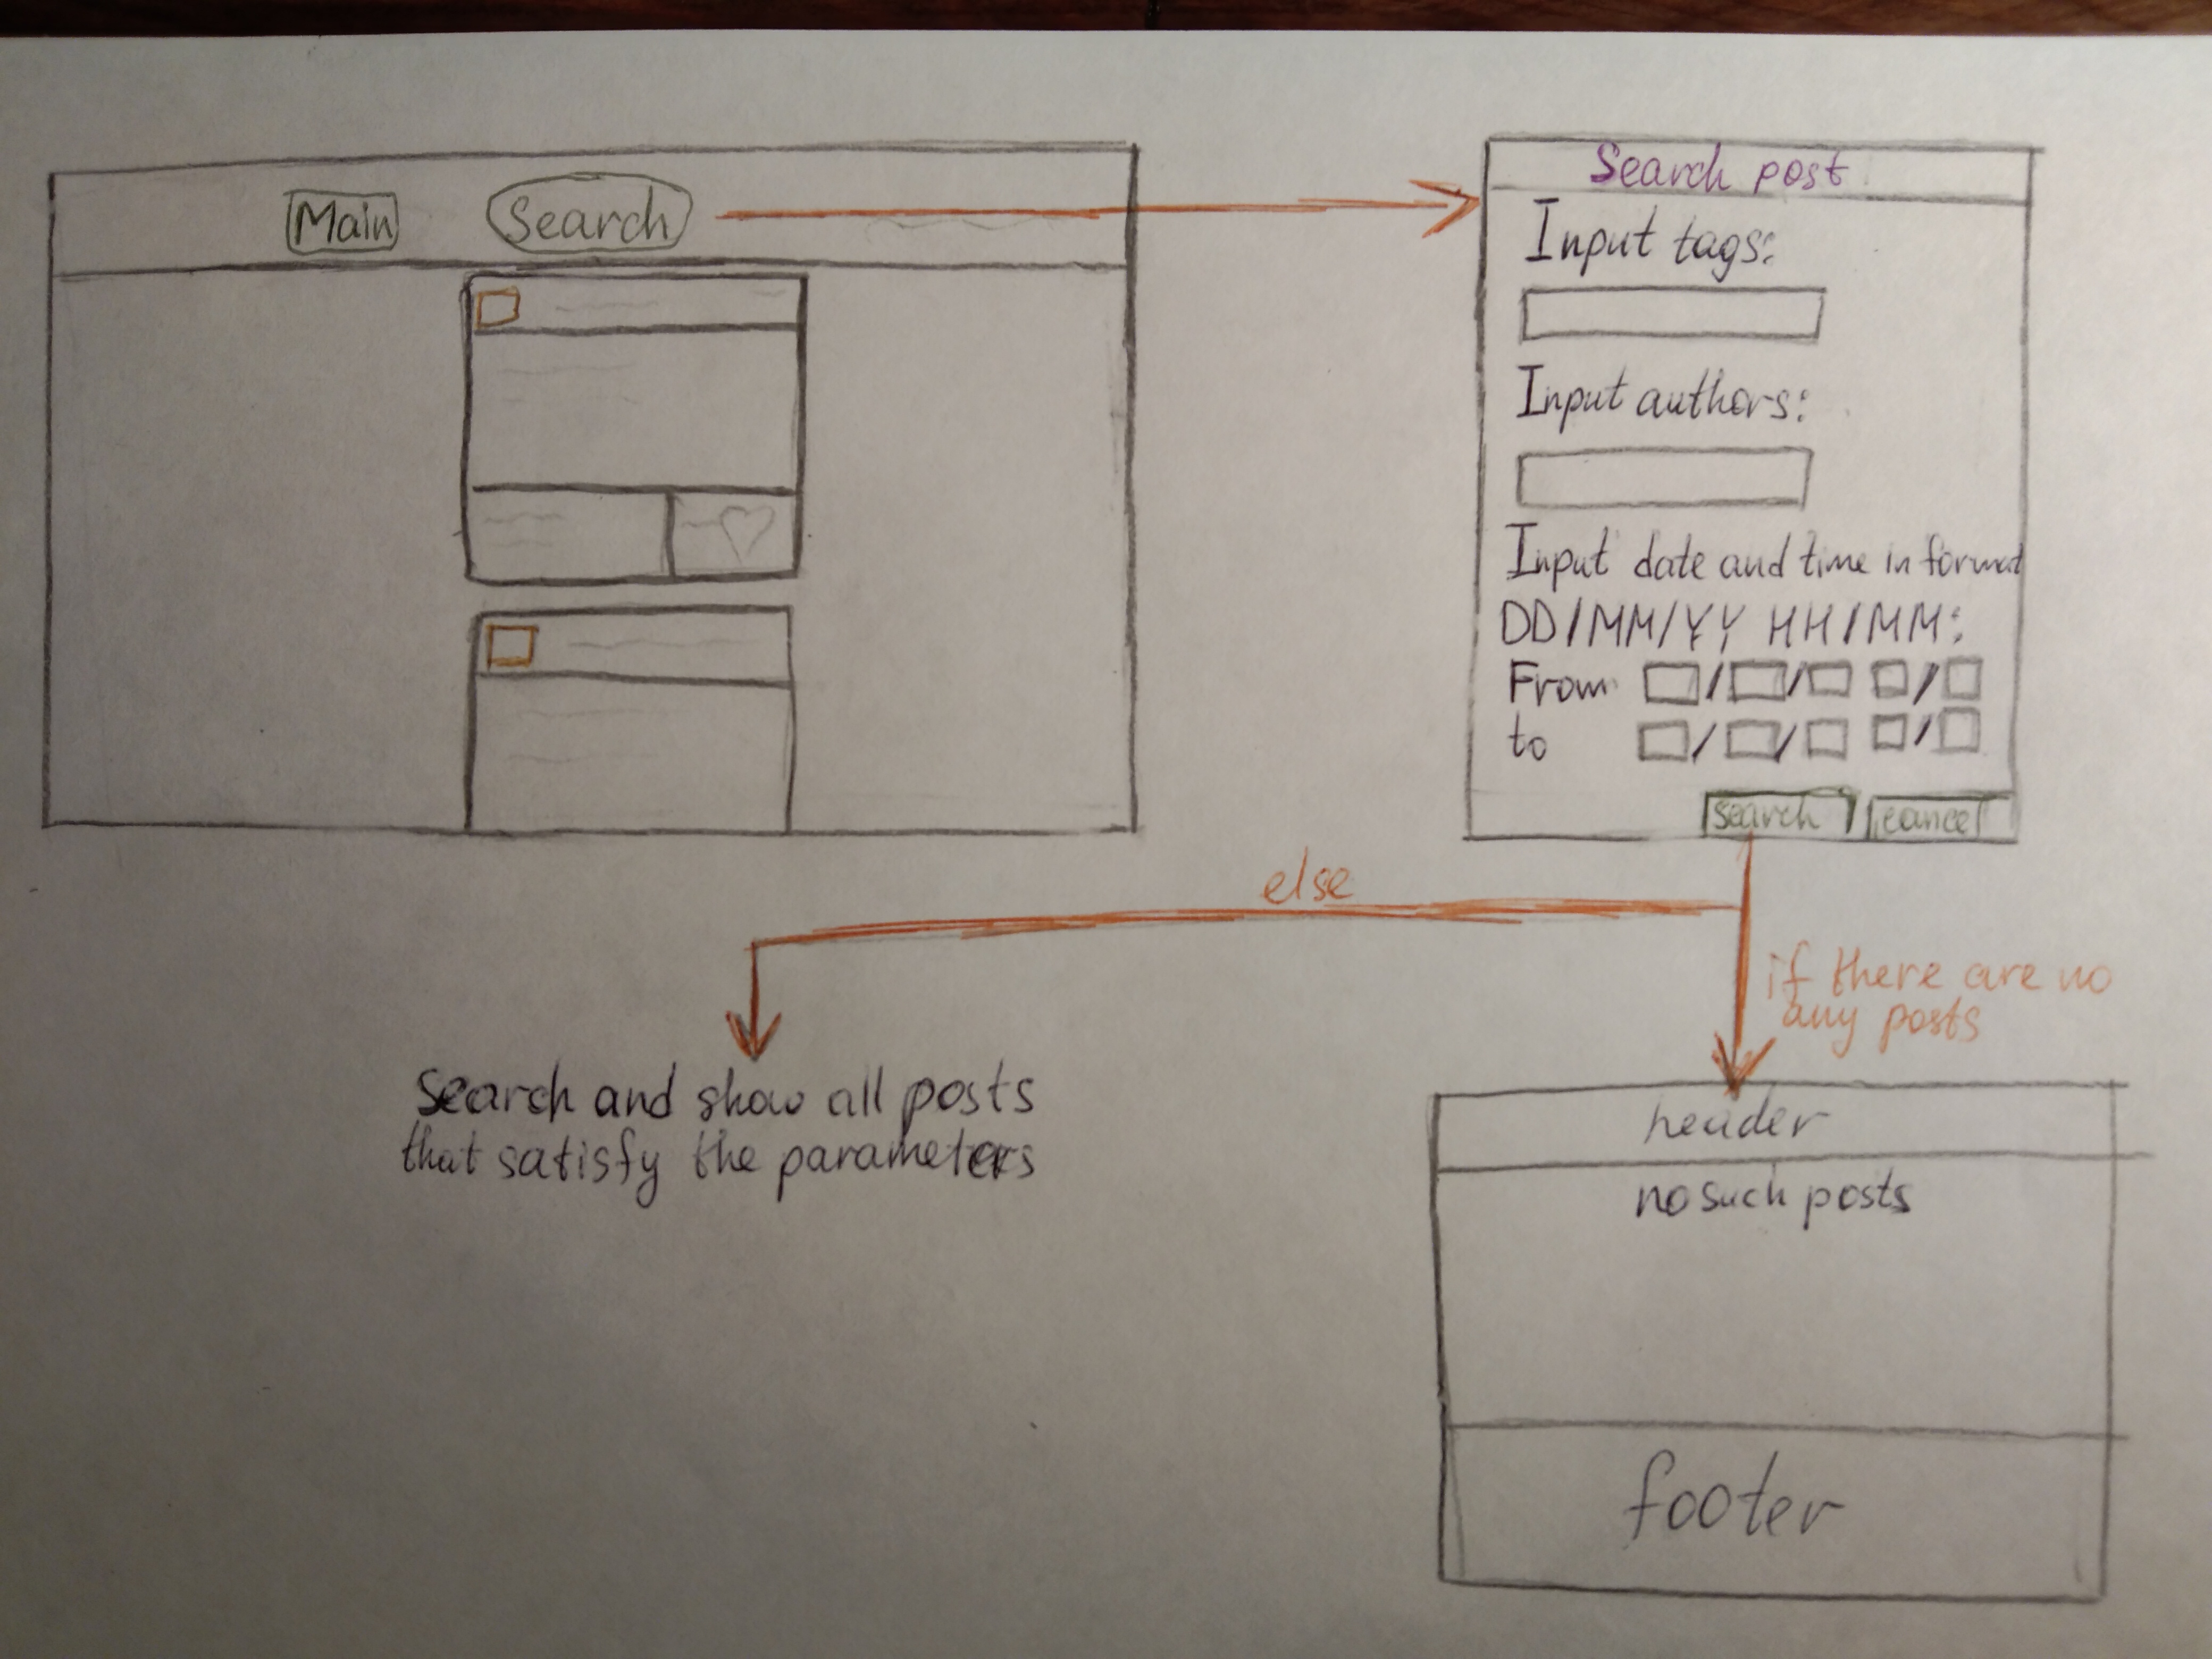 Main
Search
Search post
Input tags:
Input authors:
Input date and time in format
DD/MM/YY HH/MM:
From / / /
to / / /
search
cancel
else
if there are no
any posts
Search and show all posts
that satisfy the parameters
header
no such posts
footer